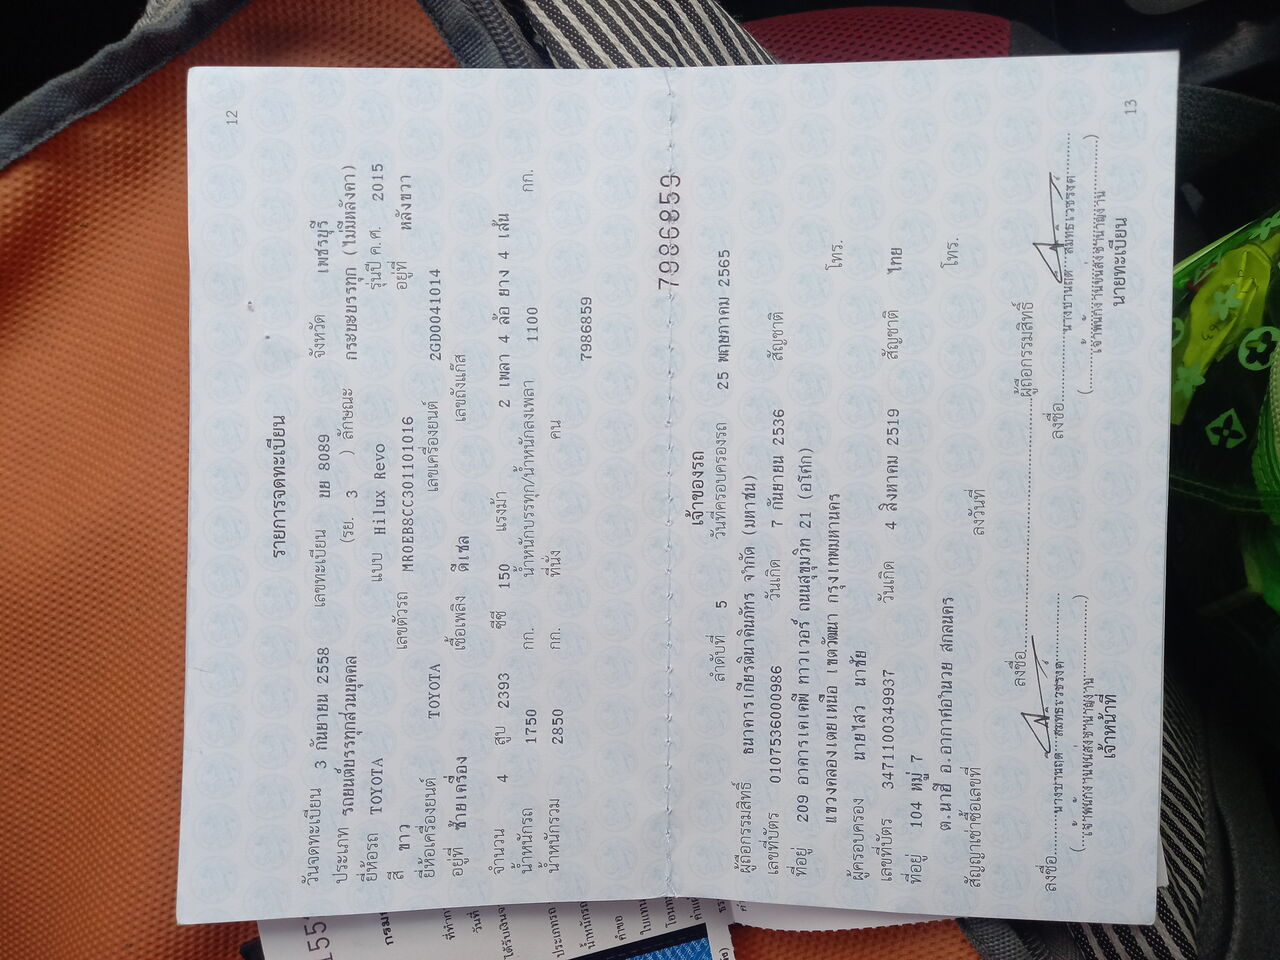 12
รายการจดทะเบียน
วันจดทะเบียน 3 กันยายน 2558 เลขทะเบียน บย 8089 จังหวัด เพชรบุรี
ประเภท รถยนต์บรรทุกส่วนบุคคล (รย. 3 ) ลักษณะ กระบะบรรทุก (ไม่มีหลังคา)
ยี่ห้อรถ TOYOTA แบบ Hilux Revo รุ่นปี ค.ศ. 2015
สี ขาว เลขตัวรถ MR0EB8CC301101016 อยู่ที่ หลังขวา
ยี่ห้อเครื่องยนต์ TOYOTA เลขเครื่องยนต์ 2GD0041014
อยู่ที่ ซ้ายเครื่อง เชื้อเพลิง ดีเซล เลขถังแก๊ส
จำนวน 4 สูบ 2393 ซีซี 150 แรงม้า 2 เพลา 4 ล้อ ยาง 4 เส้น
น้ำหนักรถ 1750 กก. น้ำหนักบรรทุก/น้ำหนักลงเพลา 1100 กก.
น้ำหนักรวม 2850 กก. ที่นั่ง คน
7986859
7986859
เจ้าของรถ
ลำดับที่ 5 วันที่ครอบครองรถ 25 พฤษภาคม 2565
ผู้ถือกรรมสิทธิ์ ธนาคารเกียรตินาคินภัทร จำกัด (มหาชน)
เลขที่บัตร 0107536000986 วันเกิด 7 กันยายน 2536 สัญชาติ
ที่อยู่ 209 อาคารเคเคพี ทาวเวอร์ ถนนสุขุมวิท 21 (อโศก)
แขวงคลองเตยเหนือ เขตวัฒนา กรุงเทพมหานคร โทร.
ผู้ครอบครอง นายไสว นาชัย
เลขที่บัตร 3471100349937 วันเกิด 4 สิงหาคม 2519 สัญชาติ ไทย
ที่อยู่ 104 หมู่ 7
ต.นาฮี อ.อากาศอำนวย สกลนคร โทร.
สัญญาเช่าซื้อเลขที่ ลงวันที่
ลงชื่อ ผู้ถือกรรมสิทธิ์
ลงชื่อ ลงชื่อ
(เจ้าพนักงานขนส่งชำนาญงาน) (เจ้าพนักงานขนส่งชำนาญงาน)
เจ้าหน้าที่ นายทะเบียน
13
กรมก
ที่ทำก
วันที่
ได้รับเงินจ
ประเภทรถ
น้ำหนักรถ
คำขอ
ใบแทน